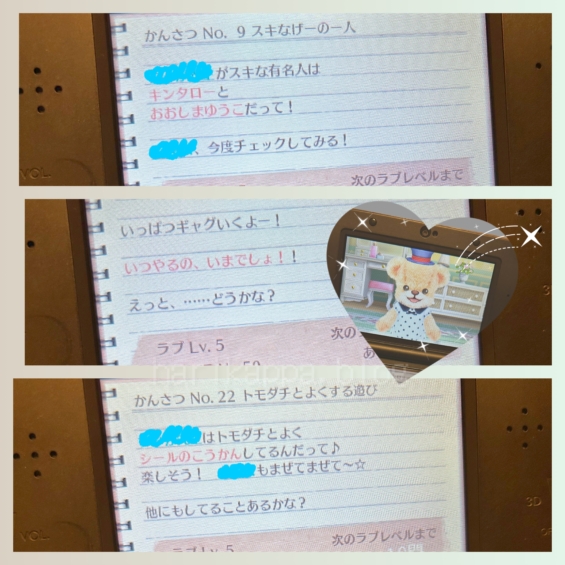 かんさつ No. 9 スキなげーの一人
がスキな有名人は
キンタローと
おおしまゆうこだって！
、今度チェックしてみる！
次のラブレベルまで
VOL
いっぱつギャグいくよー！
いつやるの、いまでしょ！！
えっと、……どうかな？
次の
ラブ Lv. 5
あ
かんさつ No. 22 トモダチとよくする遊び
はトモダチとよく
シールのこうかんしてるんだって♪
楽しそう！ もまぜてまぜて～☆
他にもしてることあるかな？
次のラブレベルまで
ラブ Lv. 5
3D
VOL